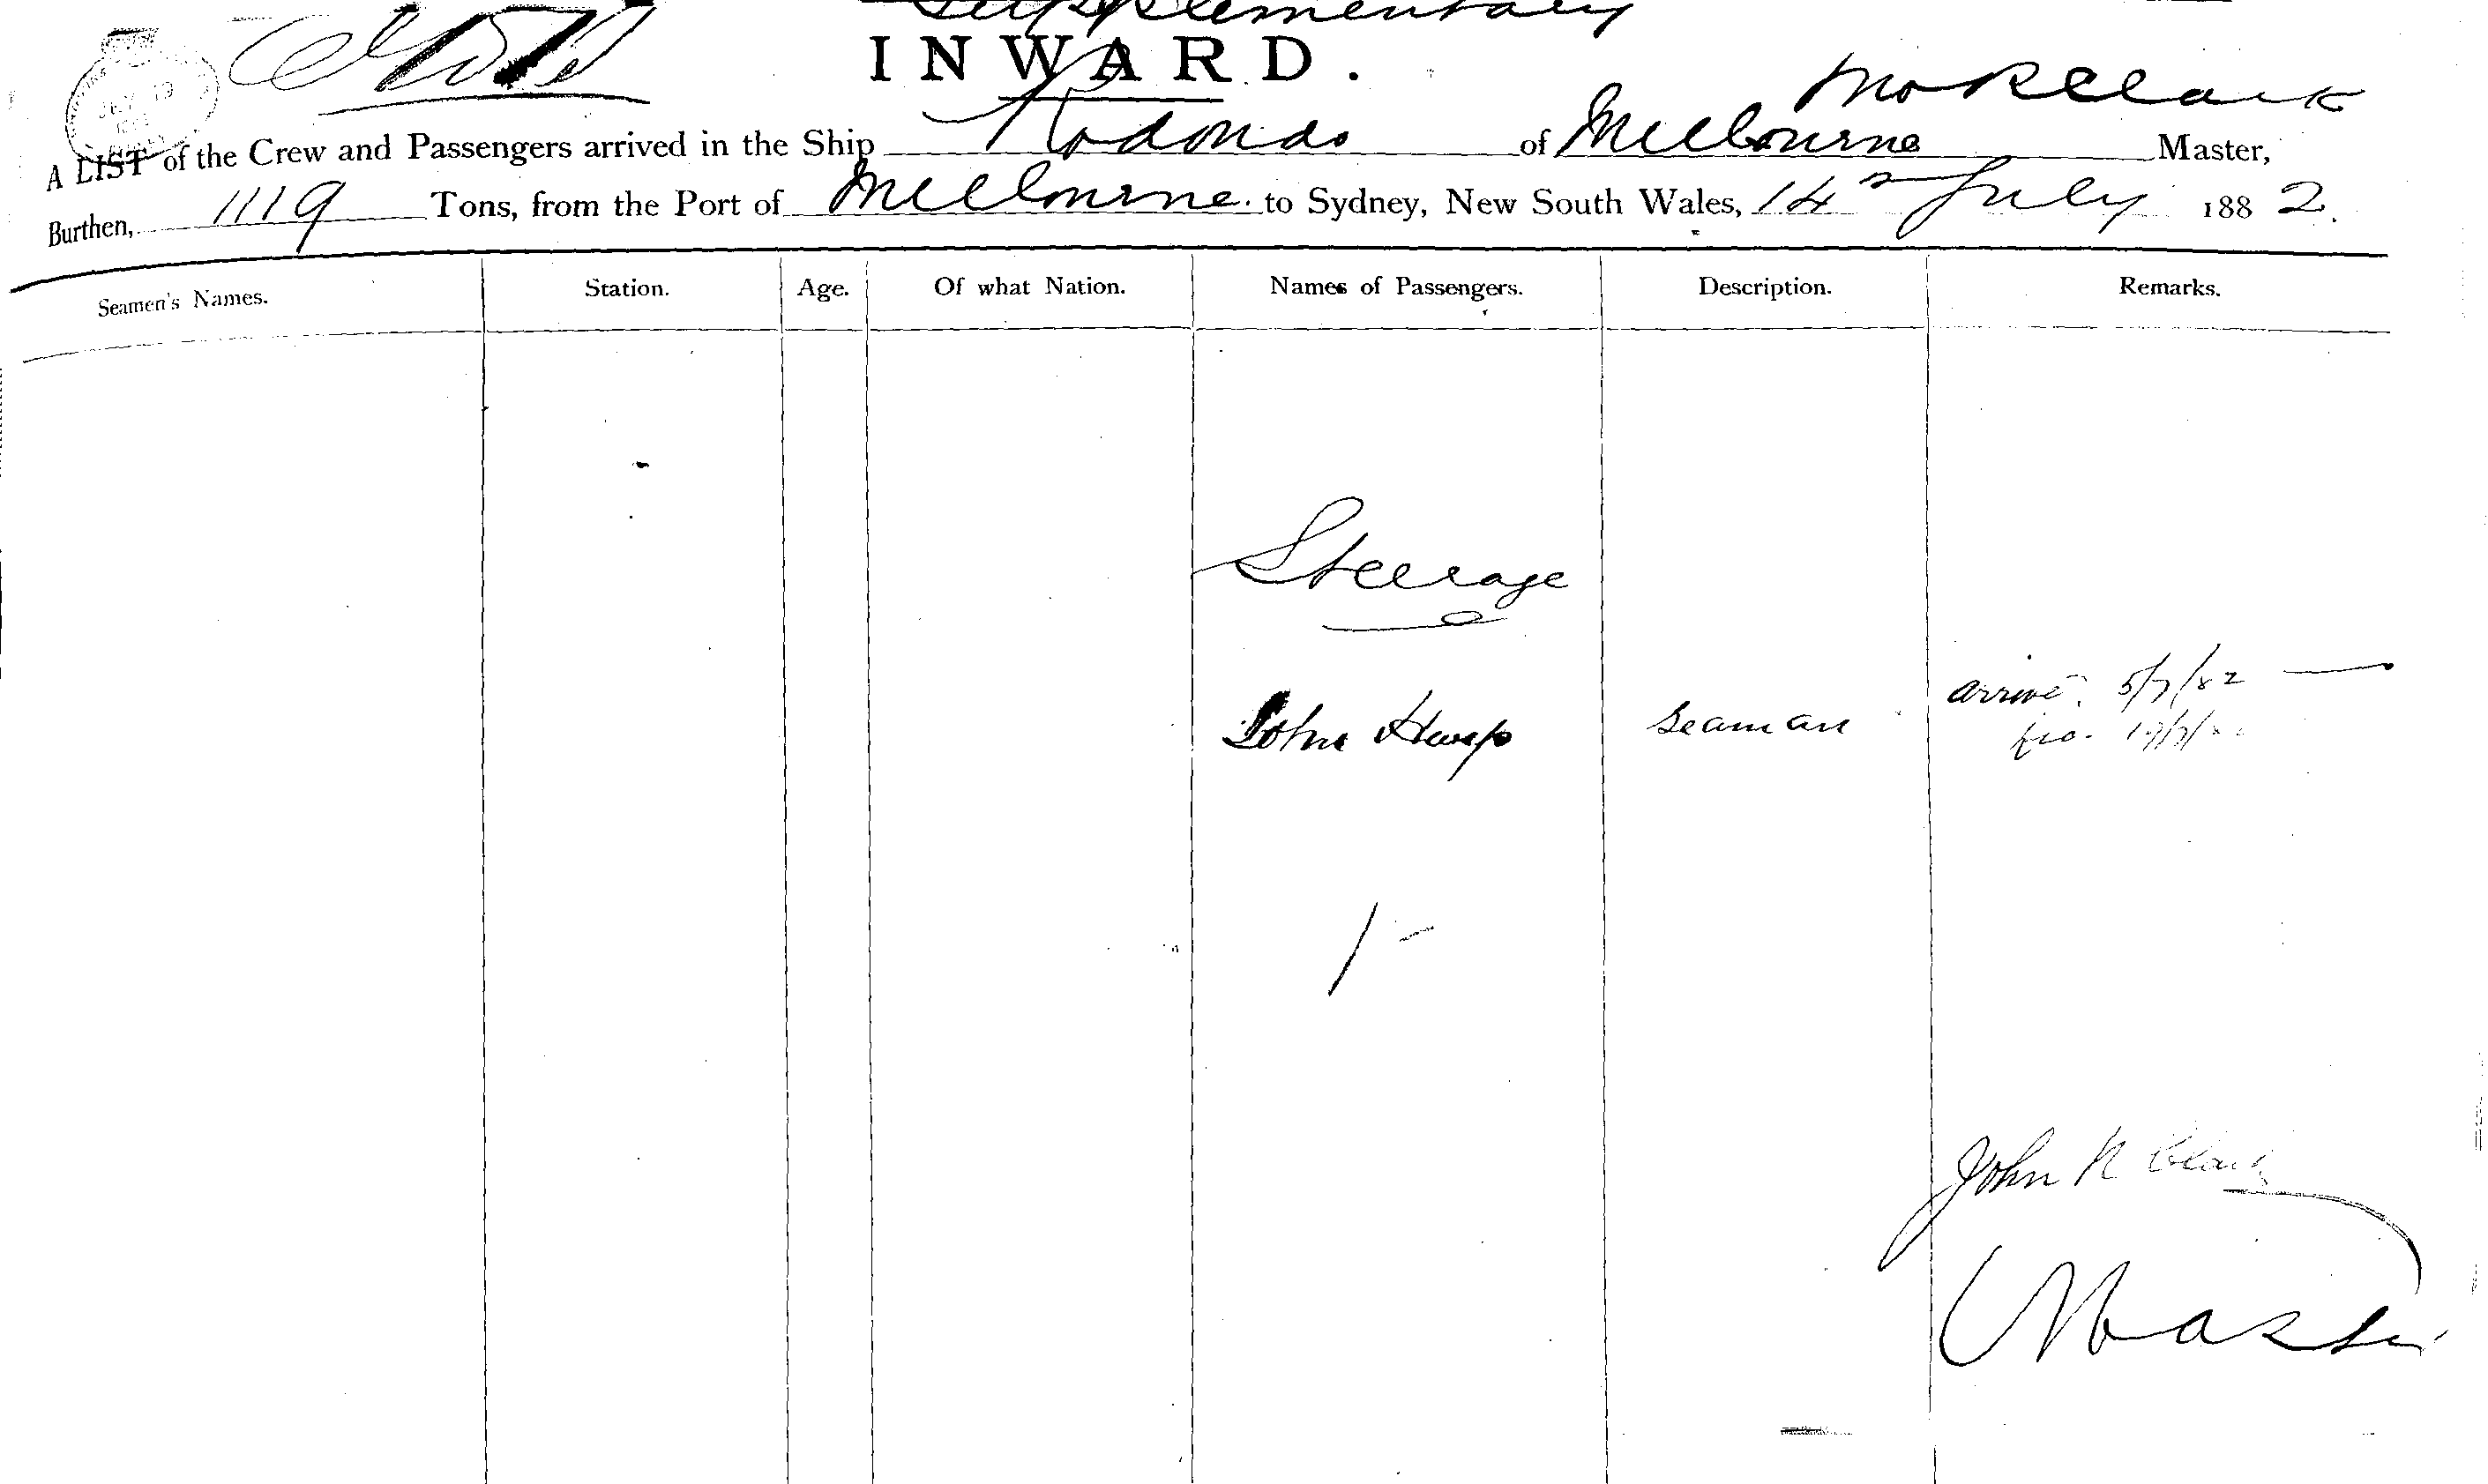 Supplementary
INWARD.
A LIST of the Crew and Passengers arrived in the Ship Rodondo of Melbourne Clark Master,
Burthen, 1119 Tons, from the Port of Melbourne to Sydney, New South Wales, 14 July 1882.
Seamen's Names. Station. Age. Of what Nation. Names of Passengers. Description. Remarks.
Steerage
John seaman 5/7/82
1
John Clark
Master